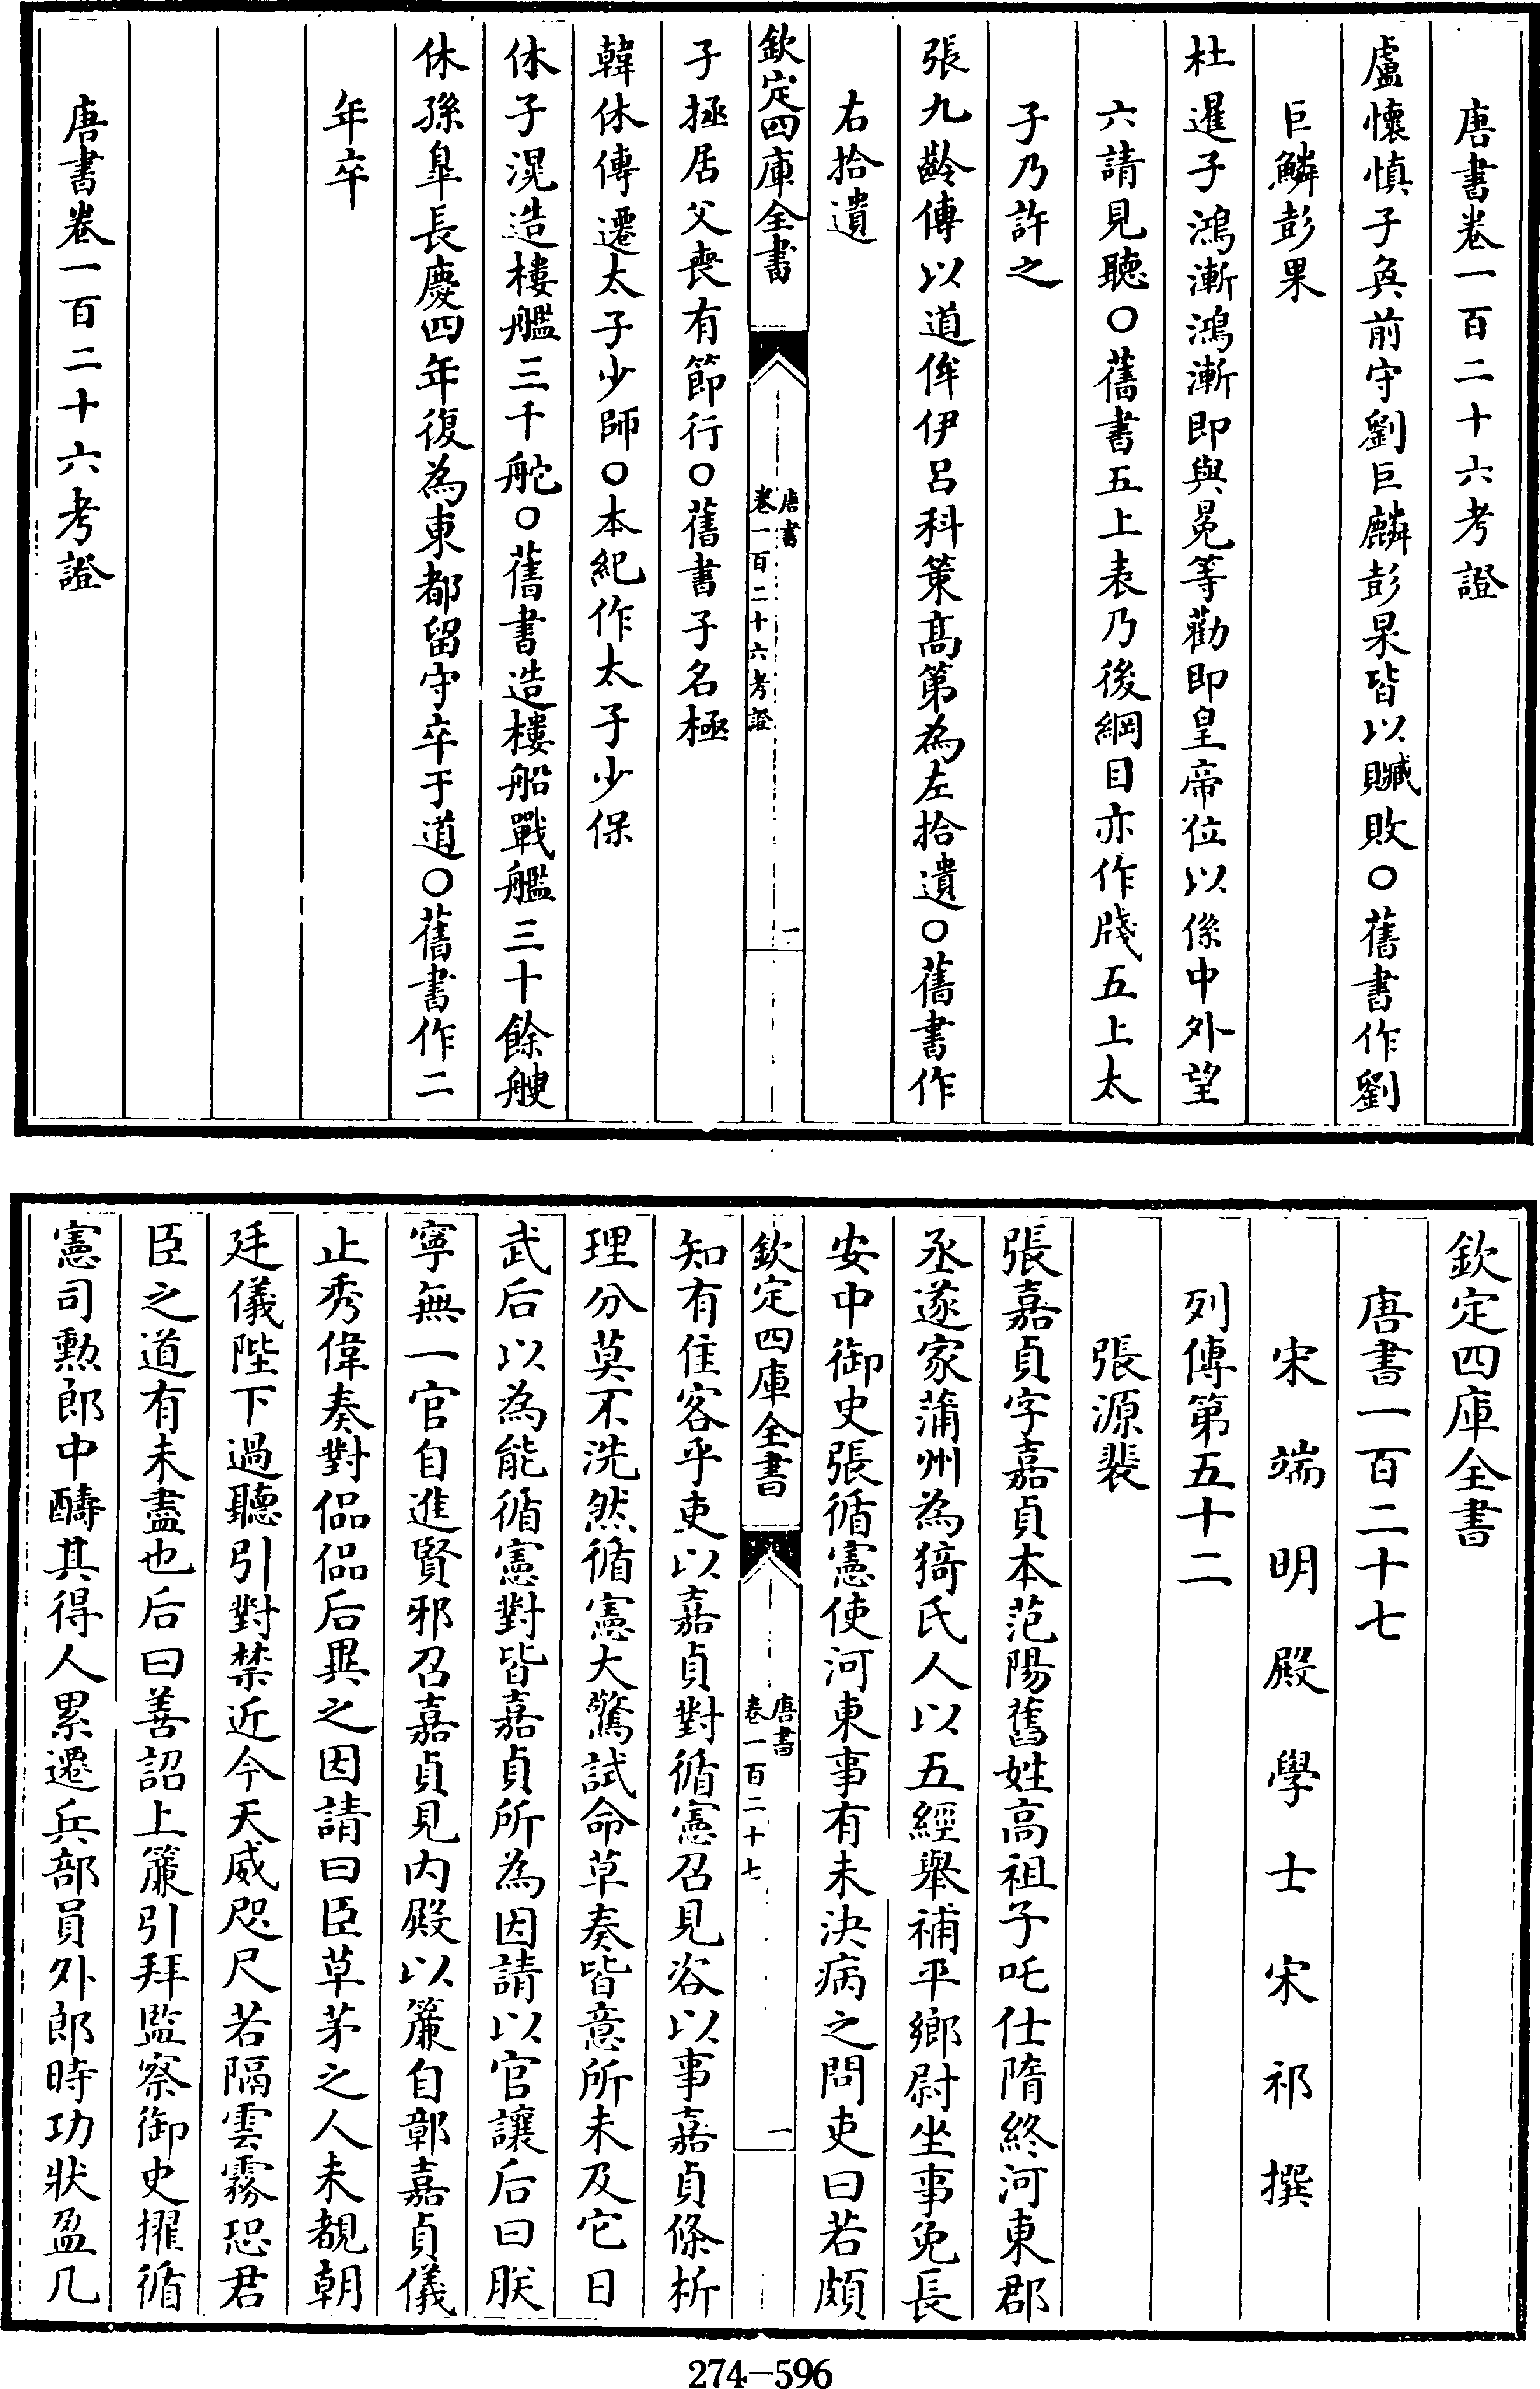 唐書卷一百二十六考證
盧懷慎子奐前守劉巨麟彭杲皆以贓敗○舊書作劉
巨鱗彭果
杜暹子鴻漸鴻漸即與冕等勸即皇帝位以係中外望
六請見聽○舊書五上表乃後綱目亦作牋五上太
子乃許之
張九齡傳以道侔伊呂科策高第為左拾遺○舊書作
右拾遺
欽定四庫全書
唐書
卷一百二十六考證
一
子拯居父喪有節行○舊書子名極
韓休傳遷太子少師○本紀作太子少保
休子滉造樓艦三千舵○舊書造樓船戰艦三十餘艘
休孫臯長慶四年復為東都留守卒于道○舊書作二
年卒
唐書卷一百二十六考證
欽定四庫全書
唐書一百二十七
宋端明殿學士宋祁撰
列傳第五十二
張源裴
張嘉貞字嘉貞本范陽舊姓高祖子吒仕隋終河東郡
丞遂家蒲州為猗氏人以五經舉補平鄉尉坐事免長
安中御史張循憲使河東事有未決病之問吏曰若頗
欽定四庫全書
唐書
卷一百二十七
一
知有佳客乎吏以嘉貞對循憲召見咨以事嘉貞條析
理分莫不洗然循憲大驚試命草奏皆意所未及它日
武后以為能循憲對皆嘉貞所為因請以官讓后曰朕
寧無一官自進賢邪召嘉貞見内殿以簾自鄣嘉貞儀
止秀偉奏對偘偘后異之因請曰臣草茅之人未覩朝
廷儀陛下過聽引對禁近今天威咫尺若隔雲霧恐君
臣之道有未盡也后曰善詔上簾引拜監察御史擢循
憲司勲郎中酬其得人累遷兵部員外郎時功狀盈几
274-596